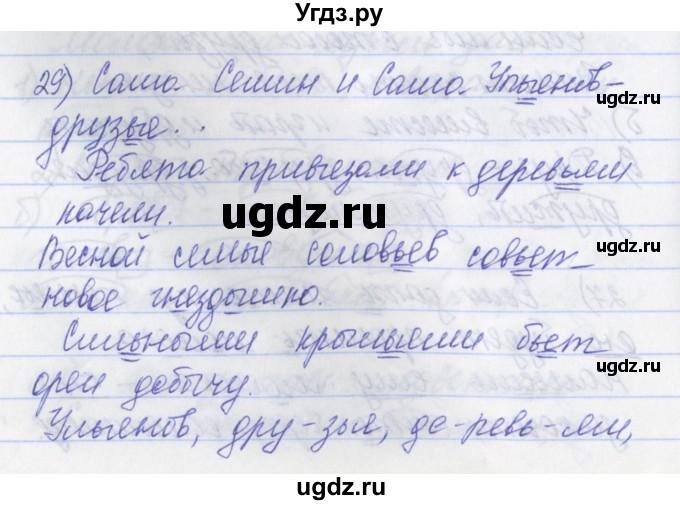 Угдз.ру
29) Саша Семин и Саша Ульянов-
друзья.
ugdz.ru
Ребята привязали к деревьям
качели.
ugdz.ru
ugdz.ru
Весной семья соловьев совьет
новое гнездышко.
Сильными крыльями бьет
орел добычу.
ugdz.ru
ugdz.ru
Ульянов, дру-зья, де-ревь-ям,
ugdz.ru